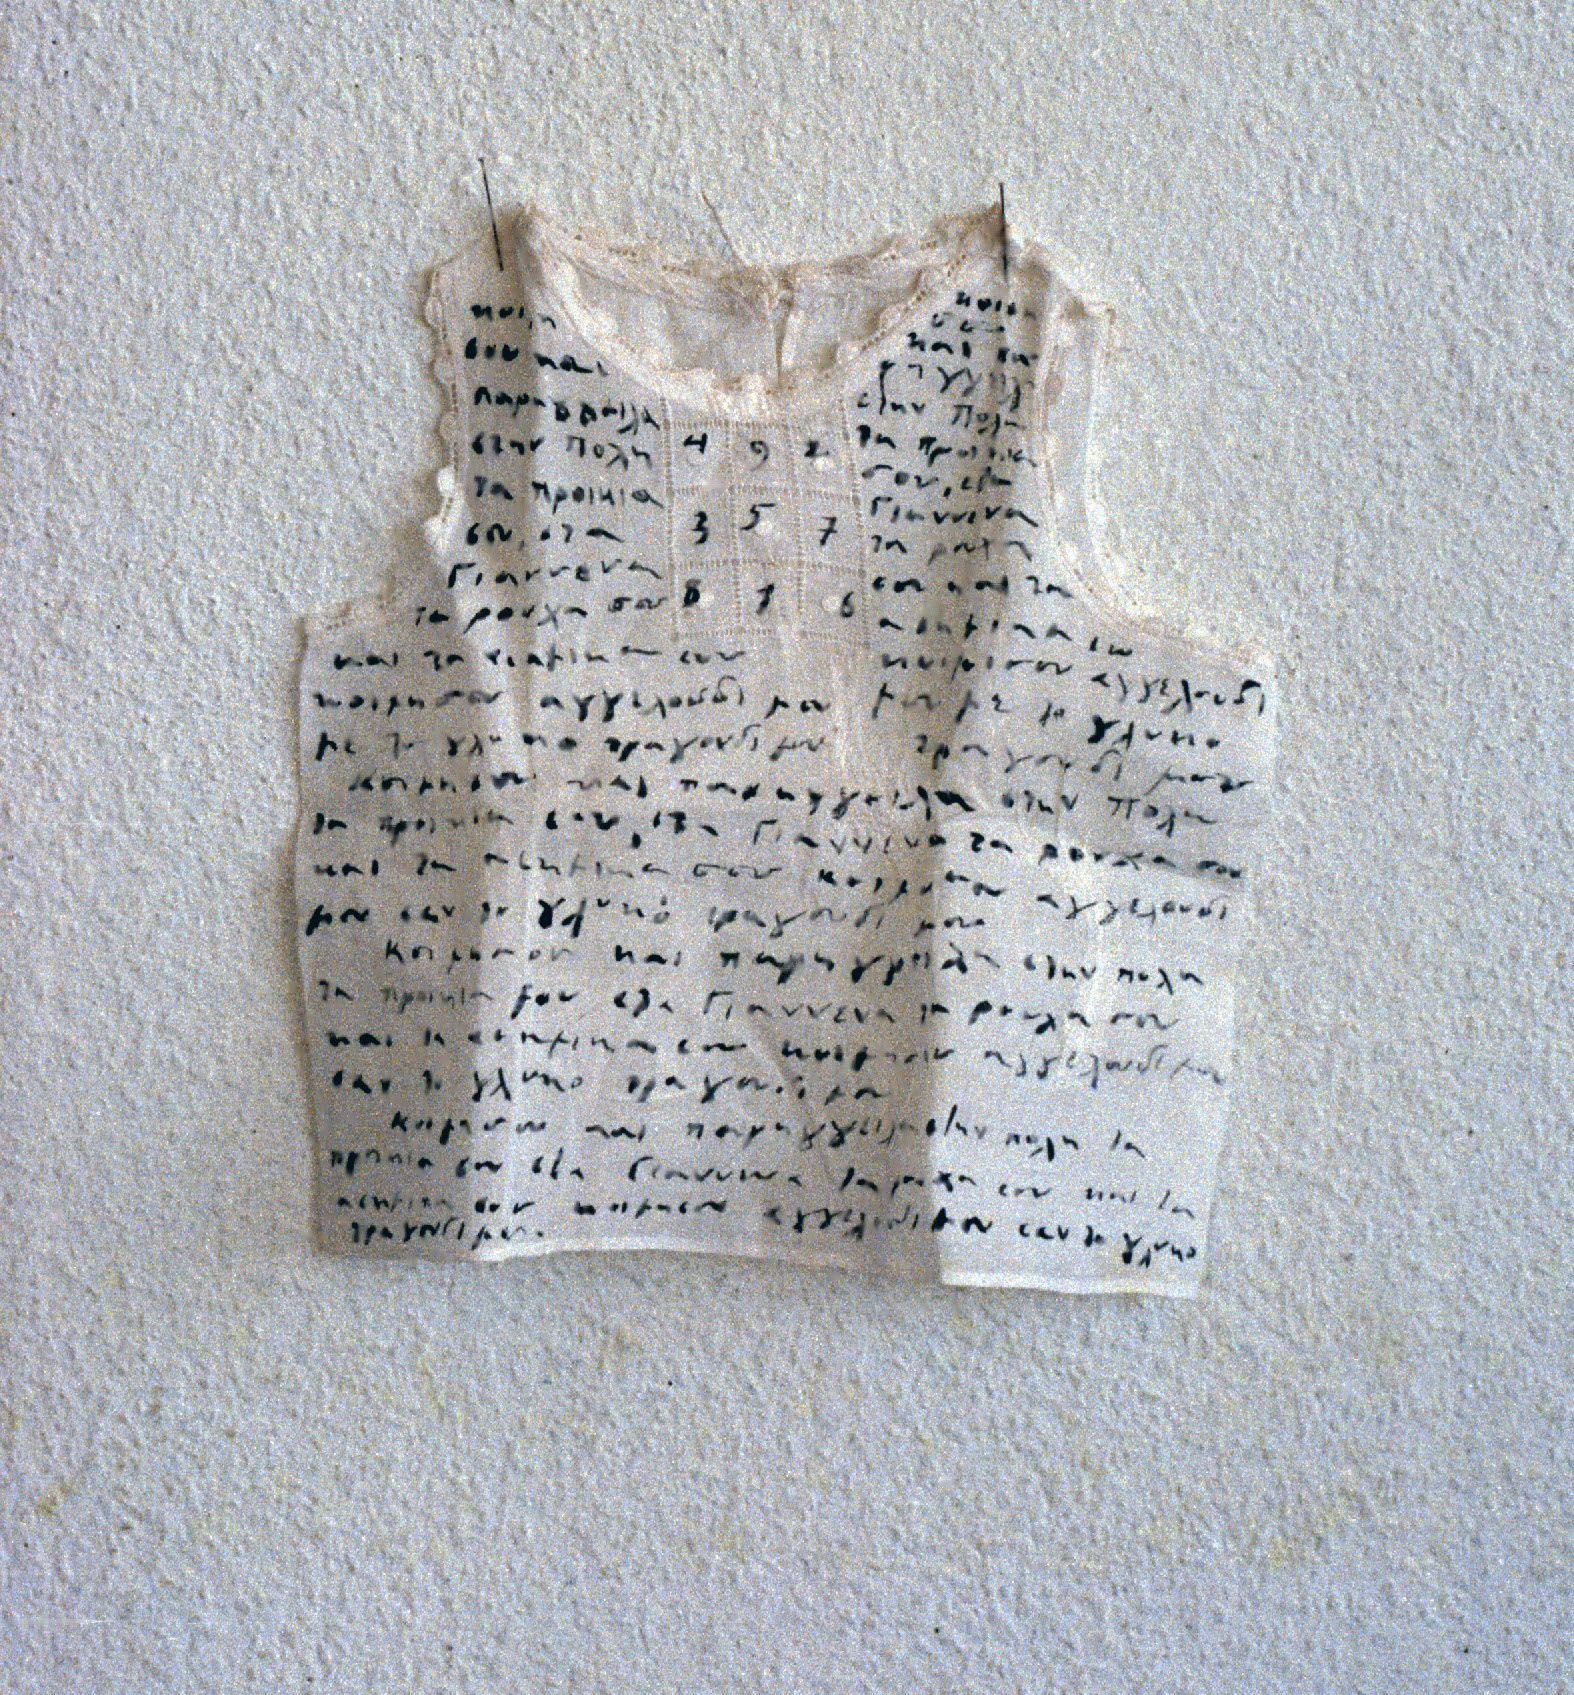 κοιμη
σου και
παρηγγειλα
στην Πολη
τα προικια
σου, στα
Γιαννενα
τα ρουχα σου
4 9 2
3 5 7
8 1 6
κοιμη
σου
και πα
ρηγγειλα
στην Πολη
τα προικια
σου, στα
Γιαννινα
τα ρουχα
σου και τα
ασημικα σου
και τα ασημικα σου
κοιμησου αγγελουδι μου
με το γλυκο τραγουδι μου
κοιμησου αγγελουδι
μου με το γλυκο
τραγουδι μου
κοιμησου και παρηγγειλα στην Πολη
τα προικια σου, στα Γιαννενα τα ρουχα σου
και τα ασημικα σου κοιμησου αγγελουδι
μου σαν το γλυκό τραγουδι μου
Κοιμησου και παρηγγειλα στην πολη
τα προικια σου στα Γιαννενα τα ρουχα σου
και τα ασημικα σου κοιμησου αγγελουδι μου
σαν το γλυκο τραγουδι μου
Κοιμησου και παρηγγειλα στην πολη τα
προικια σου στα Γιαννινα τα ρουχα σου και τα
ασημικα σου κοιμησου αγγελουδι μου σαν το γλυκο
τραγουδι μου.